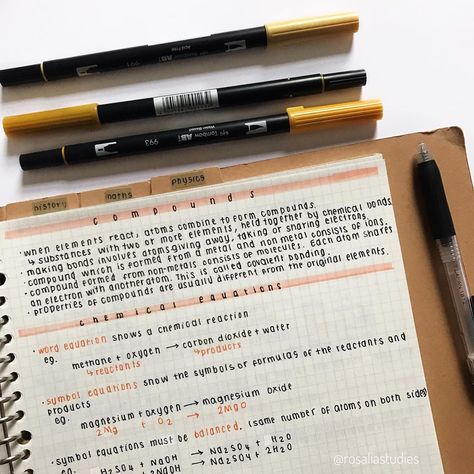 991 ABT Tombow
993 ABT Tombow
history maths physics
compounds
· when elements react, atoms combine to form compounds.
↳ substances with two or more elements, held together by chemical bonds
· making bonds involves atoms giving away, taking or sharing electrons.
· compound which is formed from a metal and non metal consists of ions.
· compound formed from non-metals consists of molecules. Each atom shares
an electron with another atom. This is called covalent bonding.
· properties of compounds are usually different from the original elements.
chemical equations
· word equation shows a chemical reaction
eg. methane + oxygen → carbon dioxide + water
↳ reactants ↳ products
· symbol equations show the symbols or formulas of the reactants and
products
eg. magnesium + oxygen → magnesium oxide
2Mg + O2 → 2MgO
· symbol equations must be balanced. (same number of atoms on both sides)
eg. H2SO4 + NaOH → Na2SO4 + H2O
→ Na2SO4 + 2H2O
@rosaliastudies